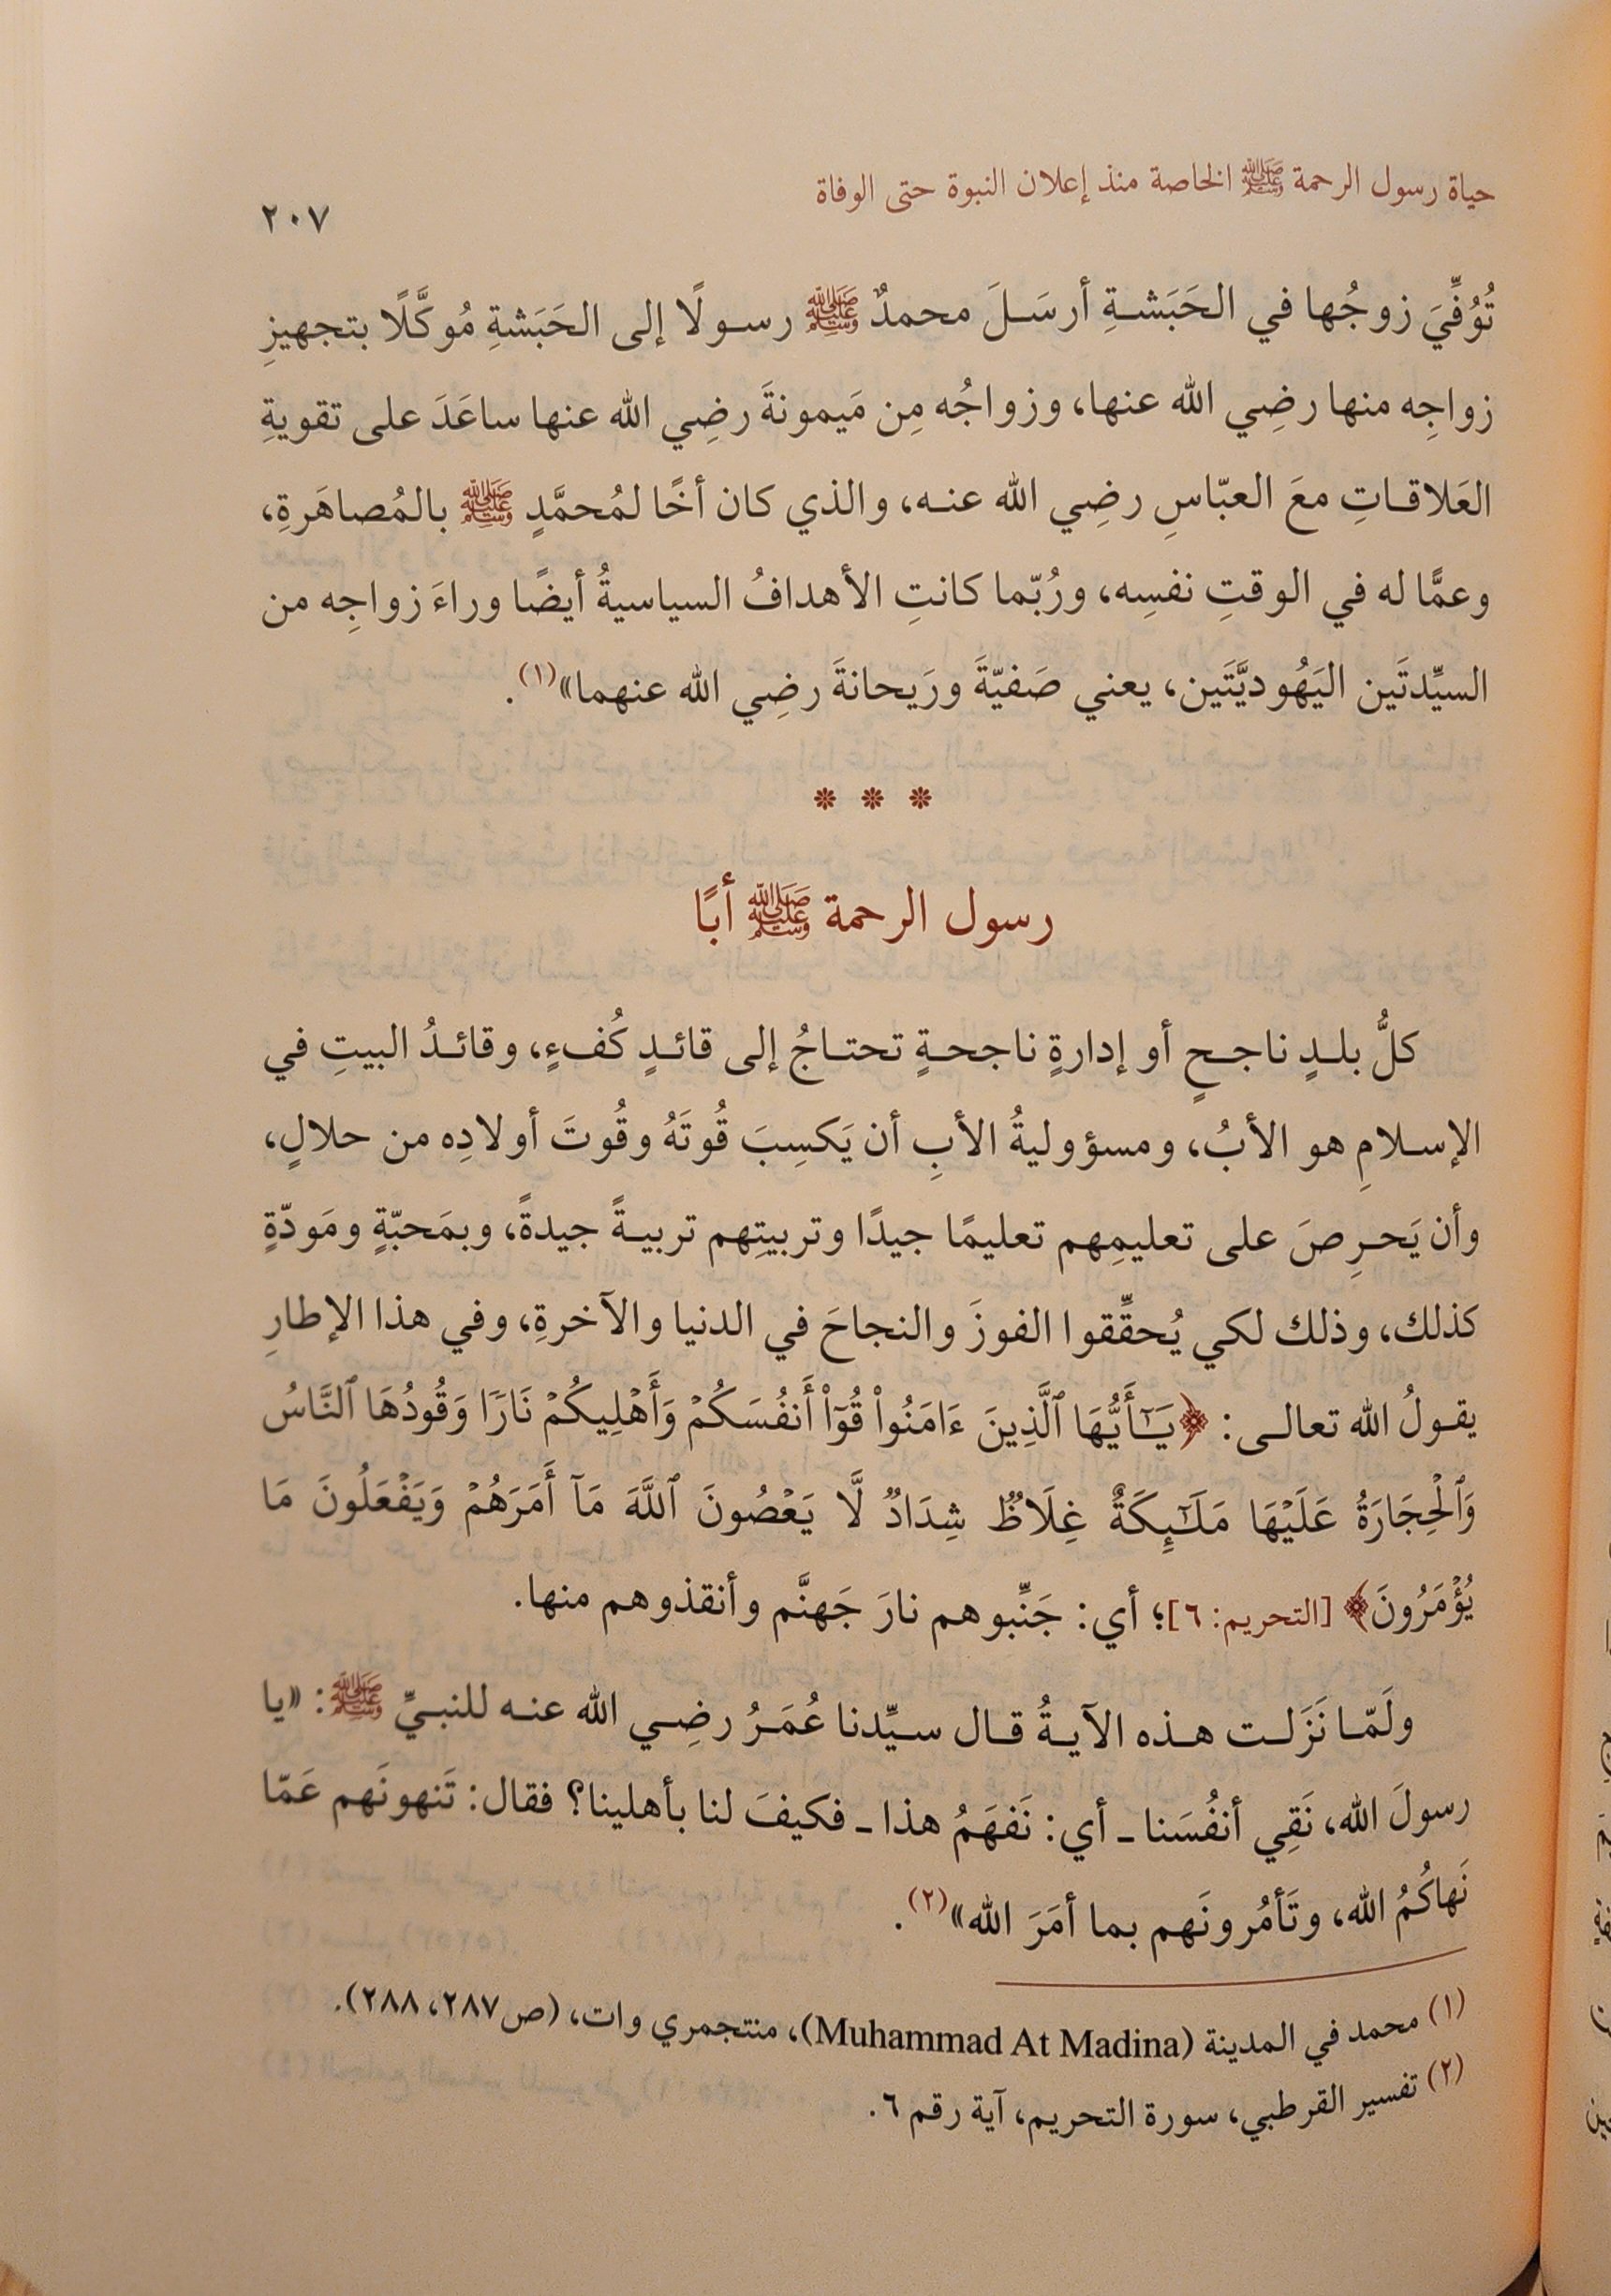 حياة رسول الرحمة ﷺ الخاصة منذ إعلان النبوة حتى الوفاة
٢٠٧
تُوُفِّيَ زوجُها في الحَبَشةِ أرسَلَ محمدٌ ﷺ رسولًا إلى الحَبَشةِ مُوكَّلًا بتجهيزِ
زواجِه منها رضِي الله عنها، وزواجُه مِن مَيمونةَ رضِي الله عنها ساعَدَ على تقويةِ
العَلاقاتِ معَ العبّاسِ رضِي الله عنه، والذي كان أخًا لمُحمَّدٍ ﷺ بالمُصاهَرةِ،
وعمًّا له في الوقتِ نفسِه، ورُبّما كانتِ الأهدافُ السياسيةُ أيضًا وراءَ زواجِه من
السيِّدتَين اليَهُوديَّتَين، يعني صَفيّةَ ورَيحانةَ رضِي الله عنهما»(١).
❊ ❊ ❊
رسول الرحمة ﷺ أبًا
كلُّ بلدٍ ناجحٍ أو إدارةٍ ناجحةٍ تحتاجُ إلى قائدٍ كُفءٍ، وقائدُ البيتِ في
الإسلامِ هو الأبُ، ومسؤوليةُ الأبِ أن يَكسِبَ قُوتَهُ وقُوتَ أولادِه من حلالٍ،
وأن يَحرِصَ على تعليمِهم تعليمًا جيدًا وتربيتِهم تربيةً جيدةً، وبمَحبّةٍ ومَودّةٍ
كذلك، وذلك لكي يُحقِّقوا الفوزَ والنجاحَ في الدنيا والآخرةِ، وفي هذا الإطارِ
يقولُ الله تعالى: ﴿يَـٰٓأَيُّهَا ٱلَّذِينَ ءَامَنُوا۟ قُوٓا۟ أَنفُسَكُمۡ وَأَهۡلِيكُمۡ نَارٗا وَقُودُهَا ٱلنَّاسُ
وَٱلۡحِجَارَةُ عَلَيۡهَا مَلَـٰٓئِكَةٌ غِلَاظٞ شِدَادٞ لَّا يَعۡصُونَ ٱللَّهَ مَآ أَمَرَهُمۡ وَيَفۡعَلُونَ مَا
يُؤۡمَرُونَ﴾ [التحريم: ٦]؛ أي: جَنِّبوهم نارَ جَهنَّم وأنقذوهم منها.
ولَمّا نَزَلت هذه الآيةُ قال سيِّدنا عُمَرُ رضِي الله عنه للنبيِّ ﷺ: «يا
رسولَ الله، نَقِي أنفُسَنا ـ أي: نَفهَمُ هذا ـ فكيفَ لنا بأهلينا؟ فقال: تَنهونَهم عَمّا
نَهاكُمُ الله، وتَأمُرونَهم بما أمَرَ الله»(٢).
(١) محمد في المدينة (Muhammad At Madina)، منتجمري وات، (ص٢٨٧، ٢٨٨).
(٢) تفسير القرطبي، سورة التحريم، آية رقم ٦.